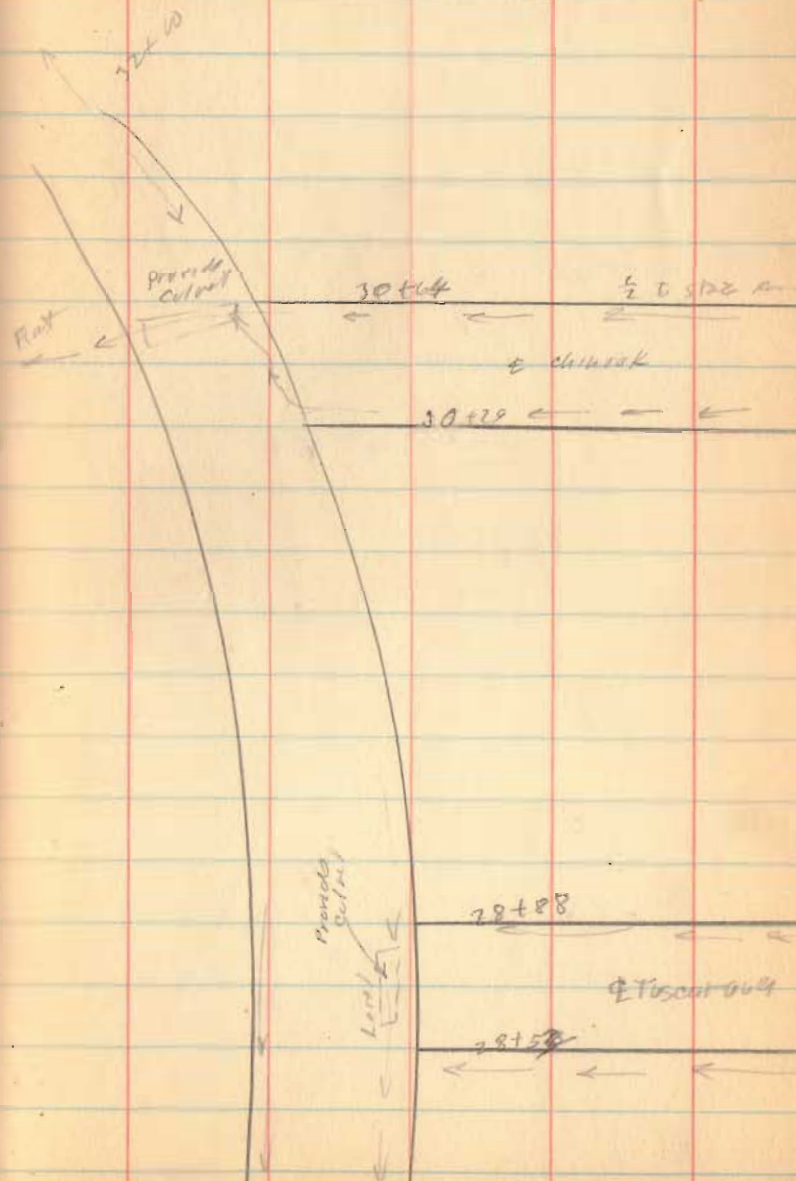 32+10
Provide
Culvert
Flat
30+64
1/2
℄ Chinook
30+29
Provide
Culvert
Level
28+88
℄ Tuscarawa
28+53